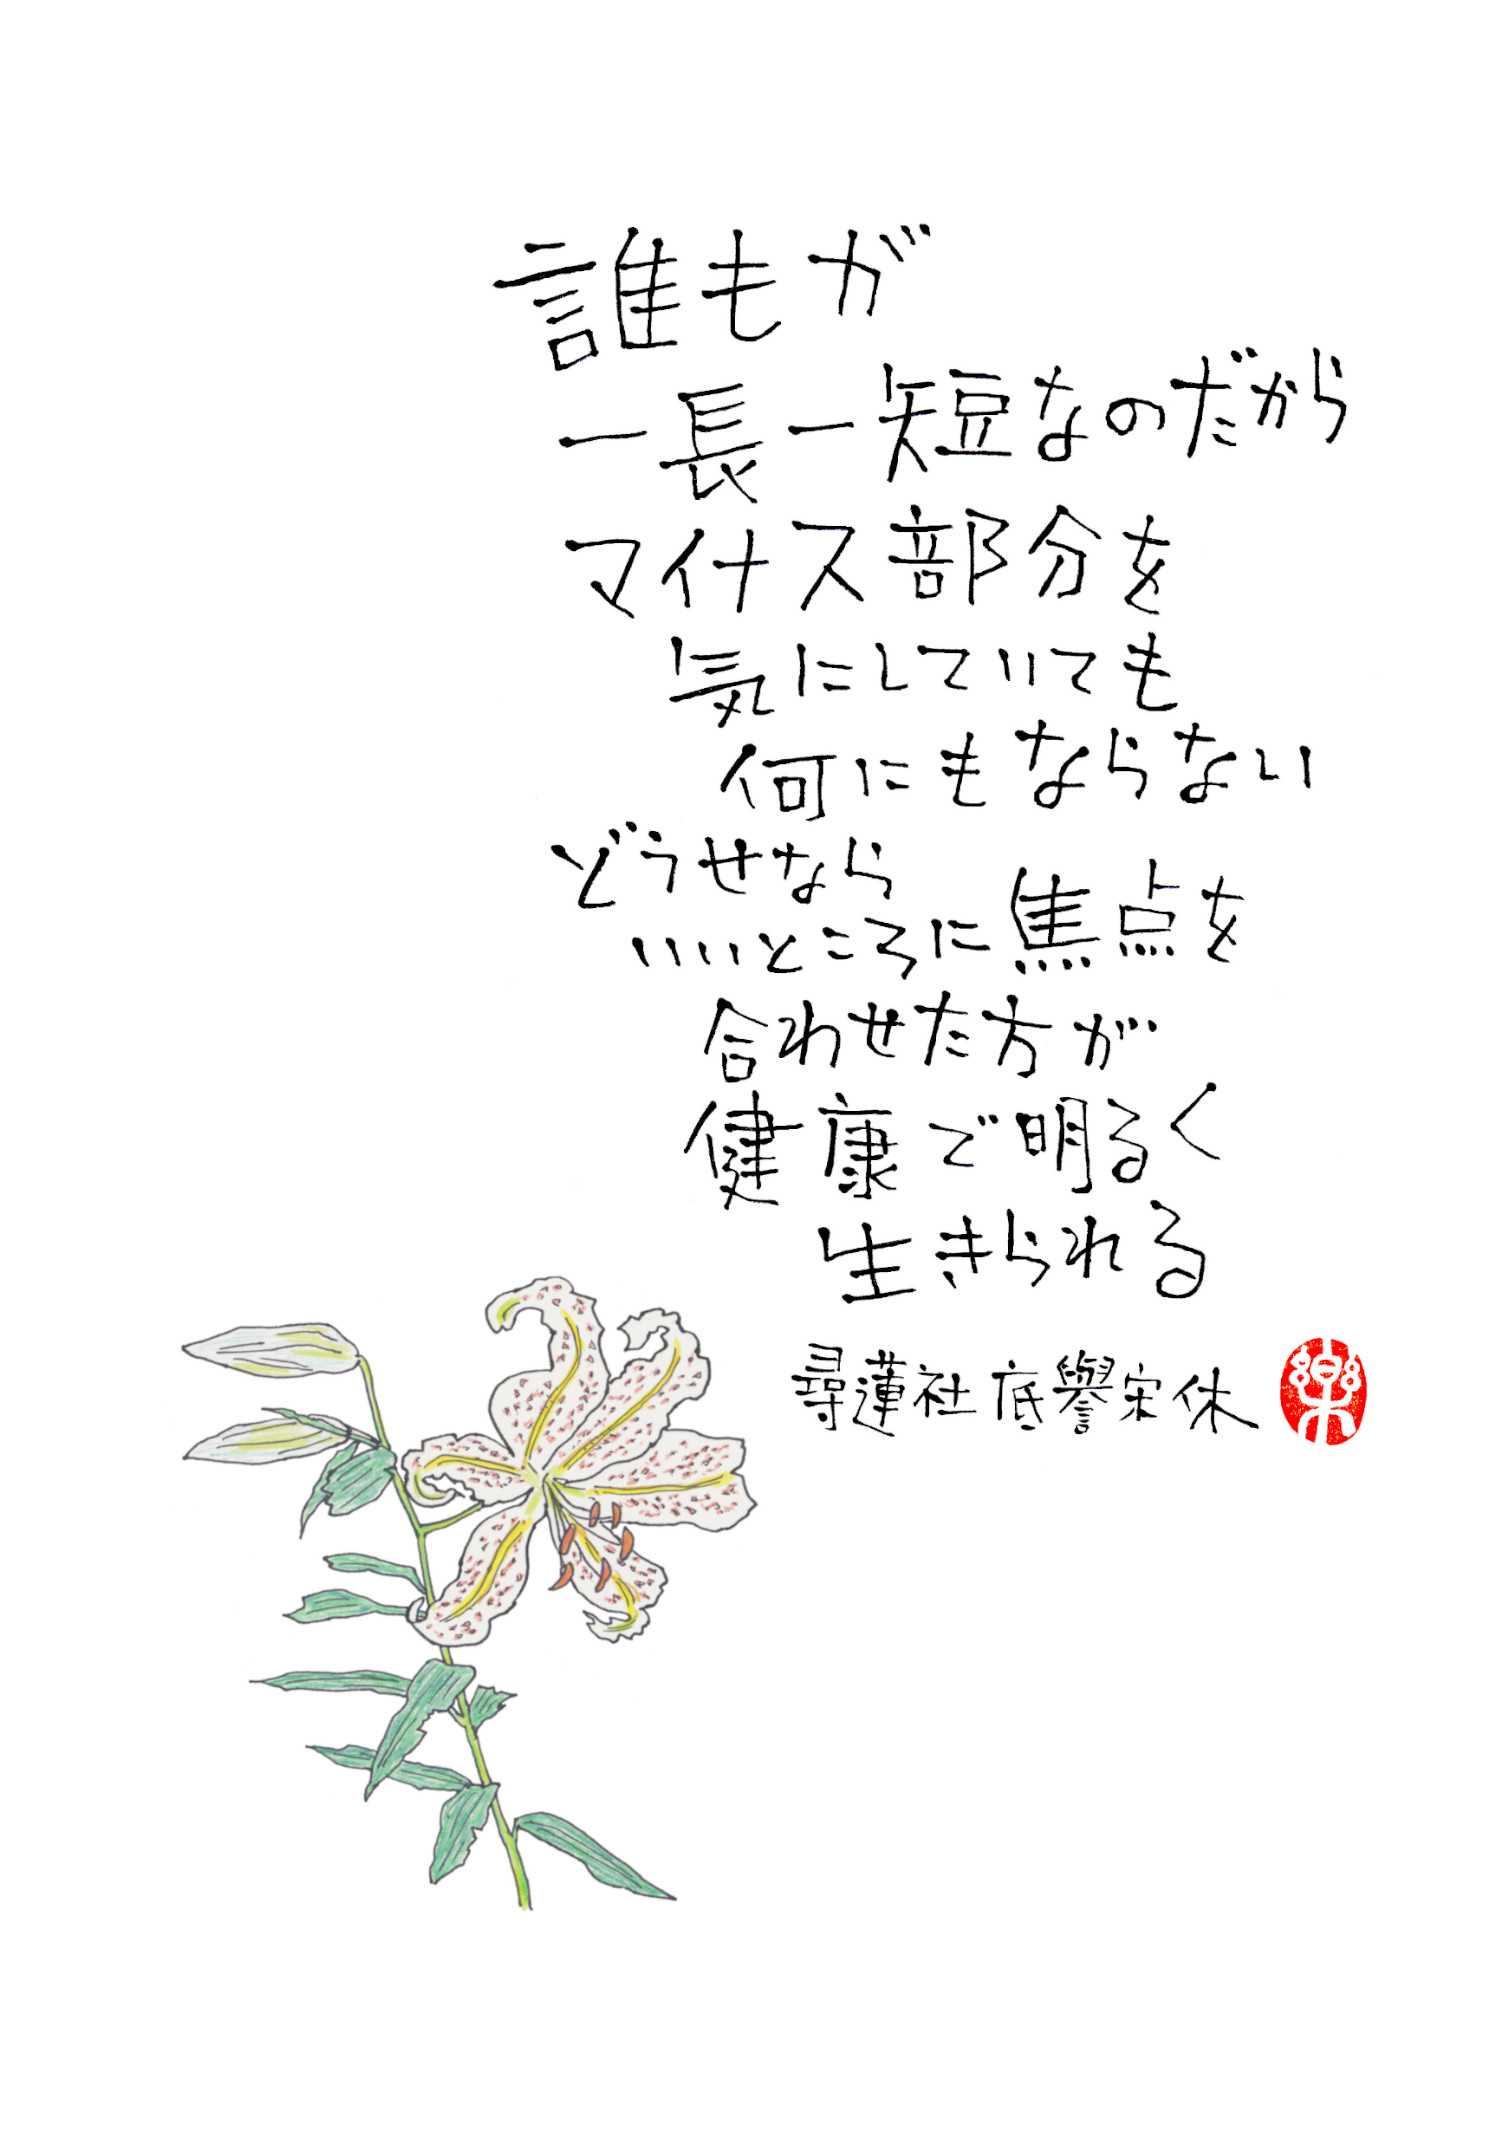 誰もが
一長一短なのだから
マイナス部分を
気にしていても
何にもならない
どうせなら
いいところに焦点を
合わせた方が
健康で明るく
生きられる
尋蓮社底譽宋休
樂